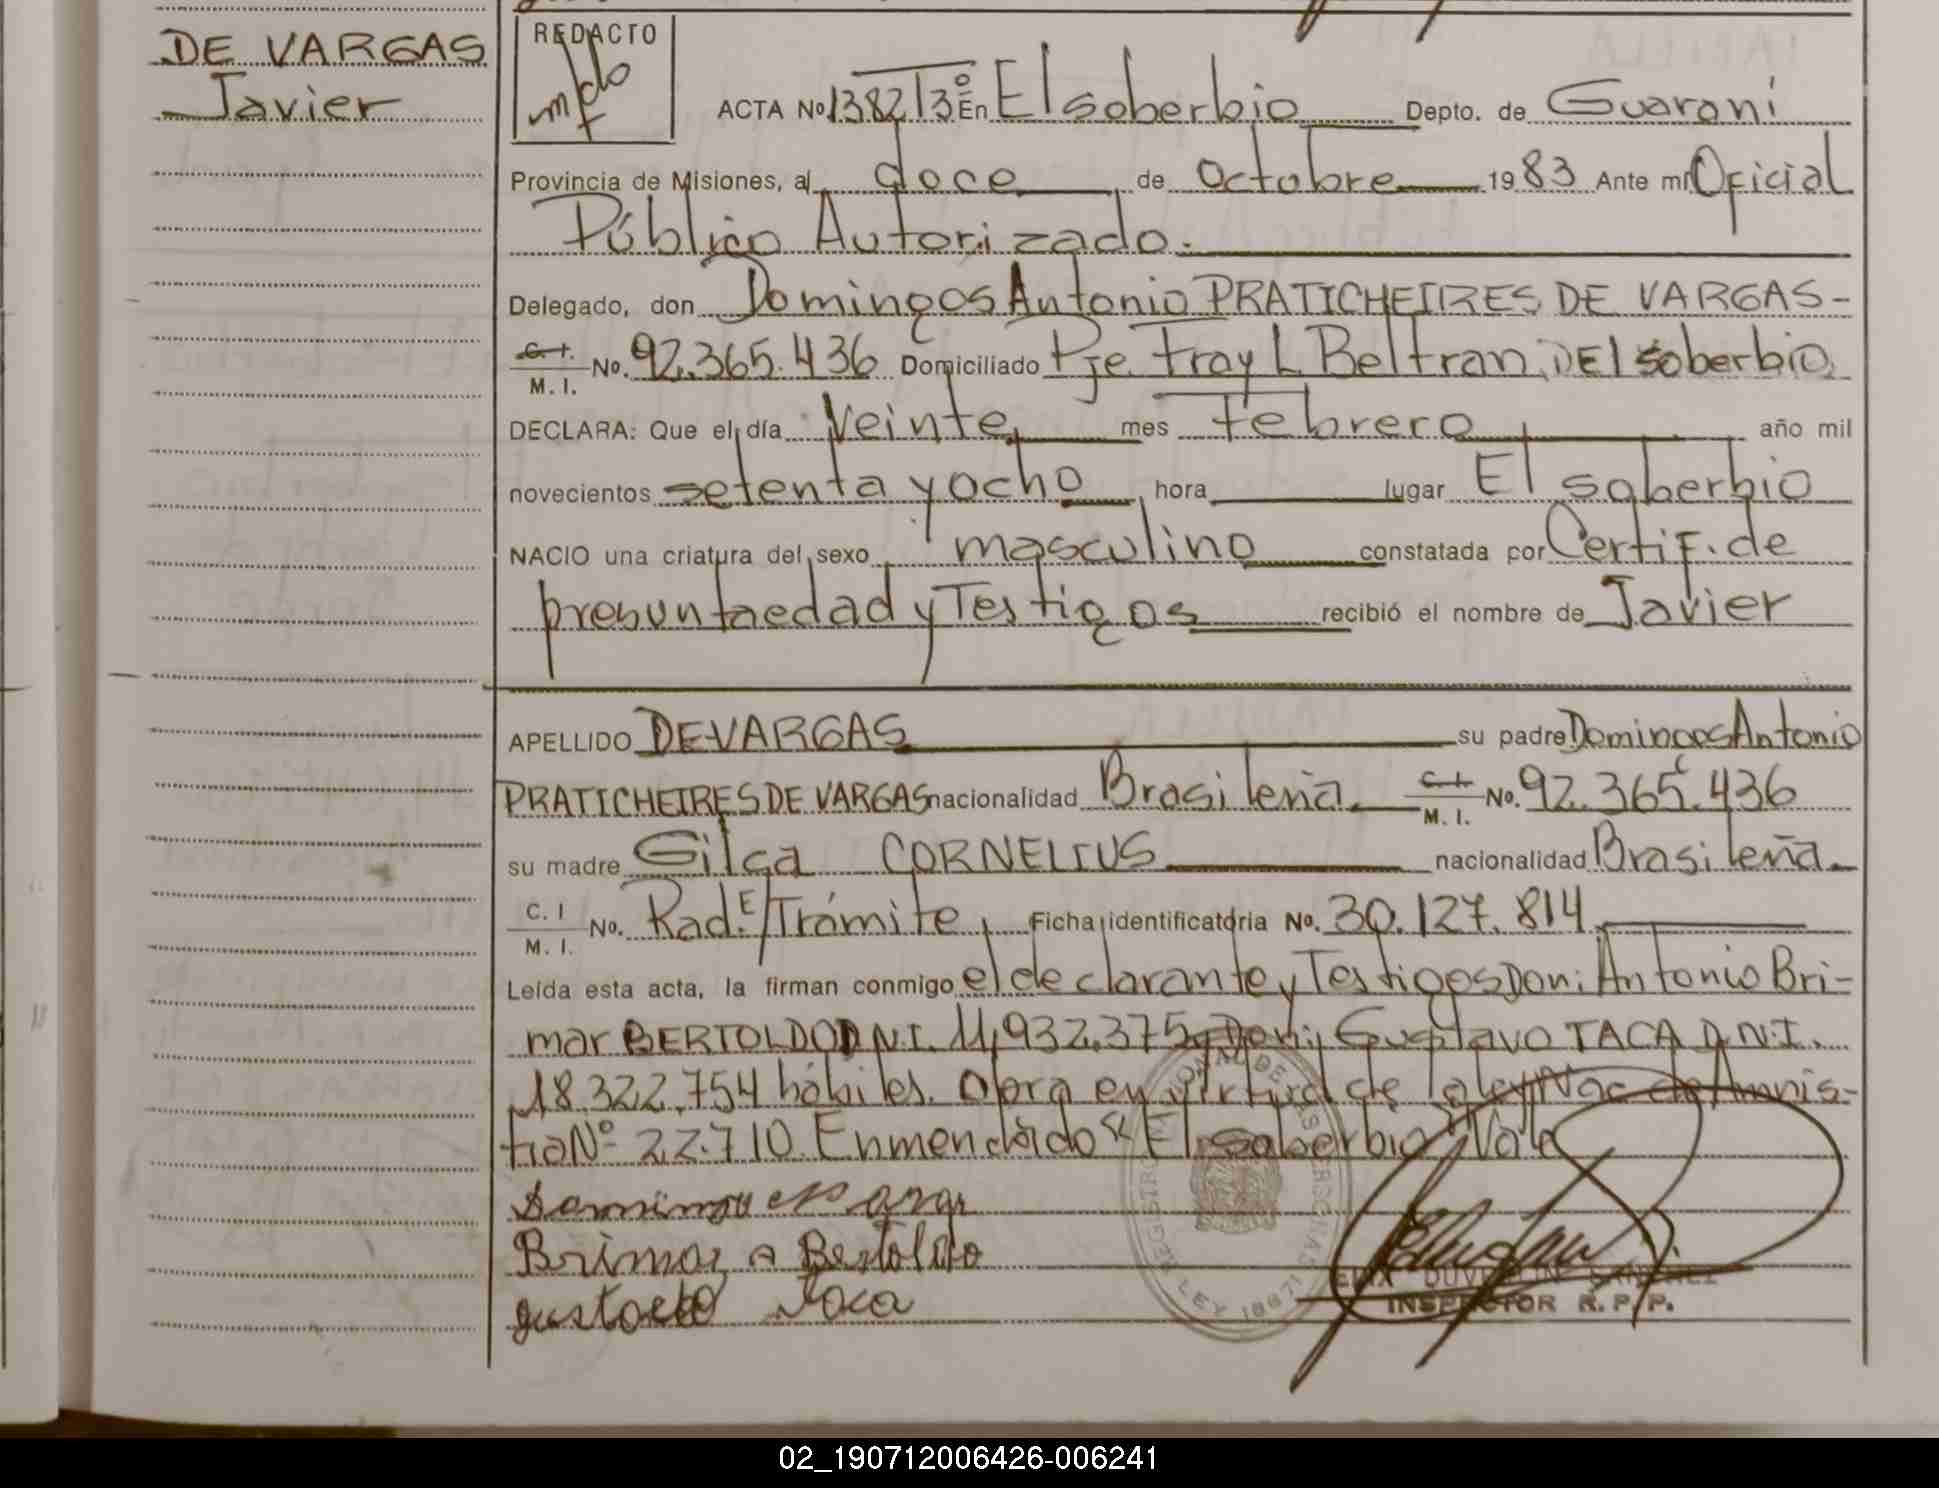 DE VARGAS
Javier
REDACTO
ACTA No 1382/3º En El soberbio Depto. de Guaraní
Provincia de Misiones, al doce de Octubre 1983 Ante mí Oficial
Público Autorizado.
Delegado, don Domingos Antonio PRATICHEIRES DE VARGAS-
C.I. M.I. No. 92.365.436 Domiciliado Pje. Fray L Beltran, DEl soberbio
DECLARA: Que el día Veinte mes Febrero año mil
novecientos setenta y ocho hora lugar El soberbio
NACIO una criatura del sexo masculino constatada por Certif. de
presuntaedad y Testigos recibió el nombre de Javier
APELLIDO DE VARGAS su padre Domingos Antonio
PRATICHEIRES DE VARGAS nacionalidad Brasileña C.I. M.I. No. 92.365.436
su madre Gilca CORNELIUS nacionalidad Brasileña
C.I M.I. No. Rad. E/Trámite, Ficha identificatoria No. 30.127.814
Leída esta acta, la firman conmigo el declarante y Testigos Don: Antonio Bri-
mar BERTOLDO D.N.I. 11,932,375 y Don: Gustavo TACA D.N.I.
18.322.754 hábiles. Obra en virtud de la ley Nac de Amnis-
tia Nº 22.710. Enmendado "El soberbio" Vale
Brimar A Bertoldo
gustavo Taca
REGISTRO LEY 1867
INSPECTOR R. P. P.
02_190712006426-006241